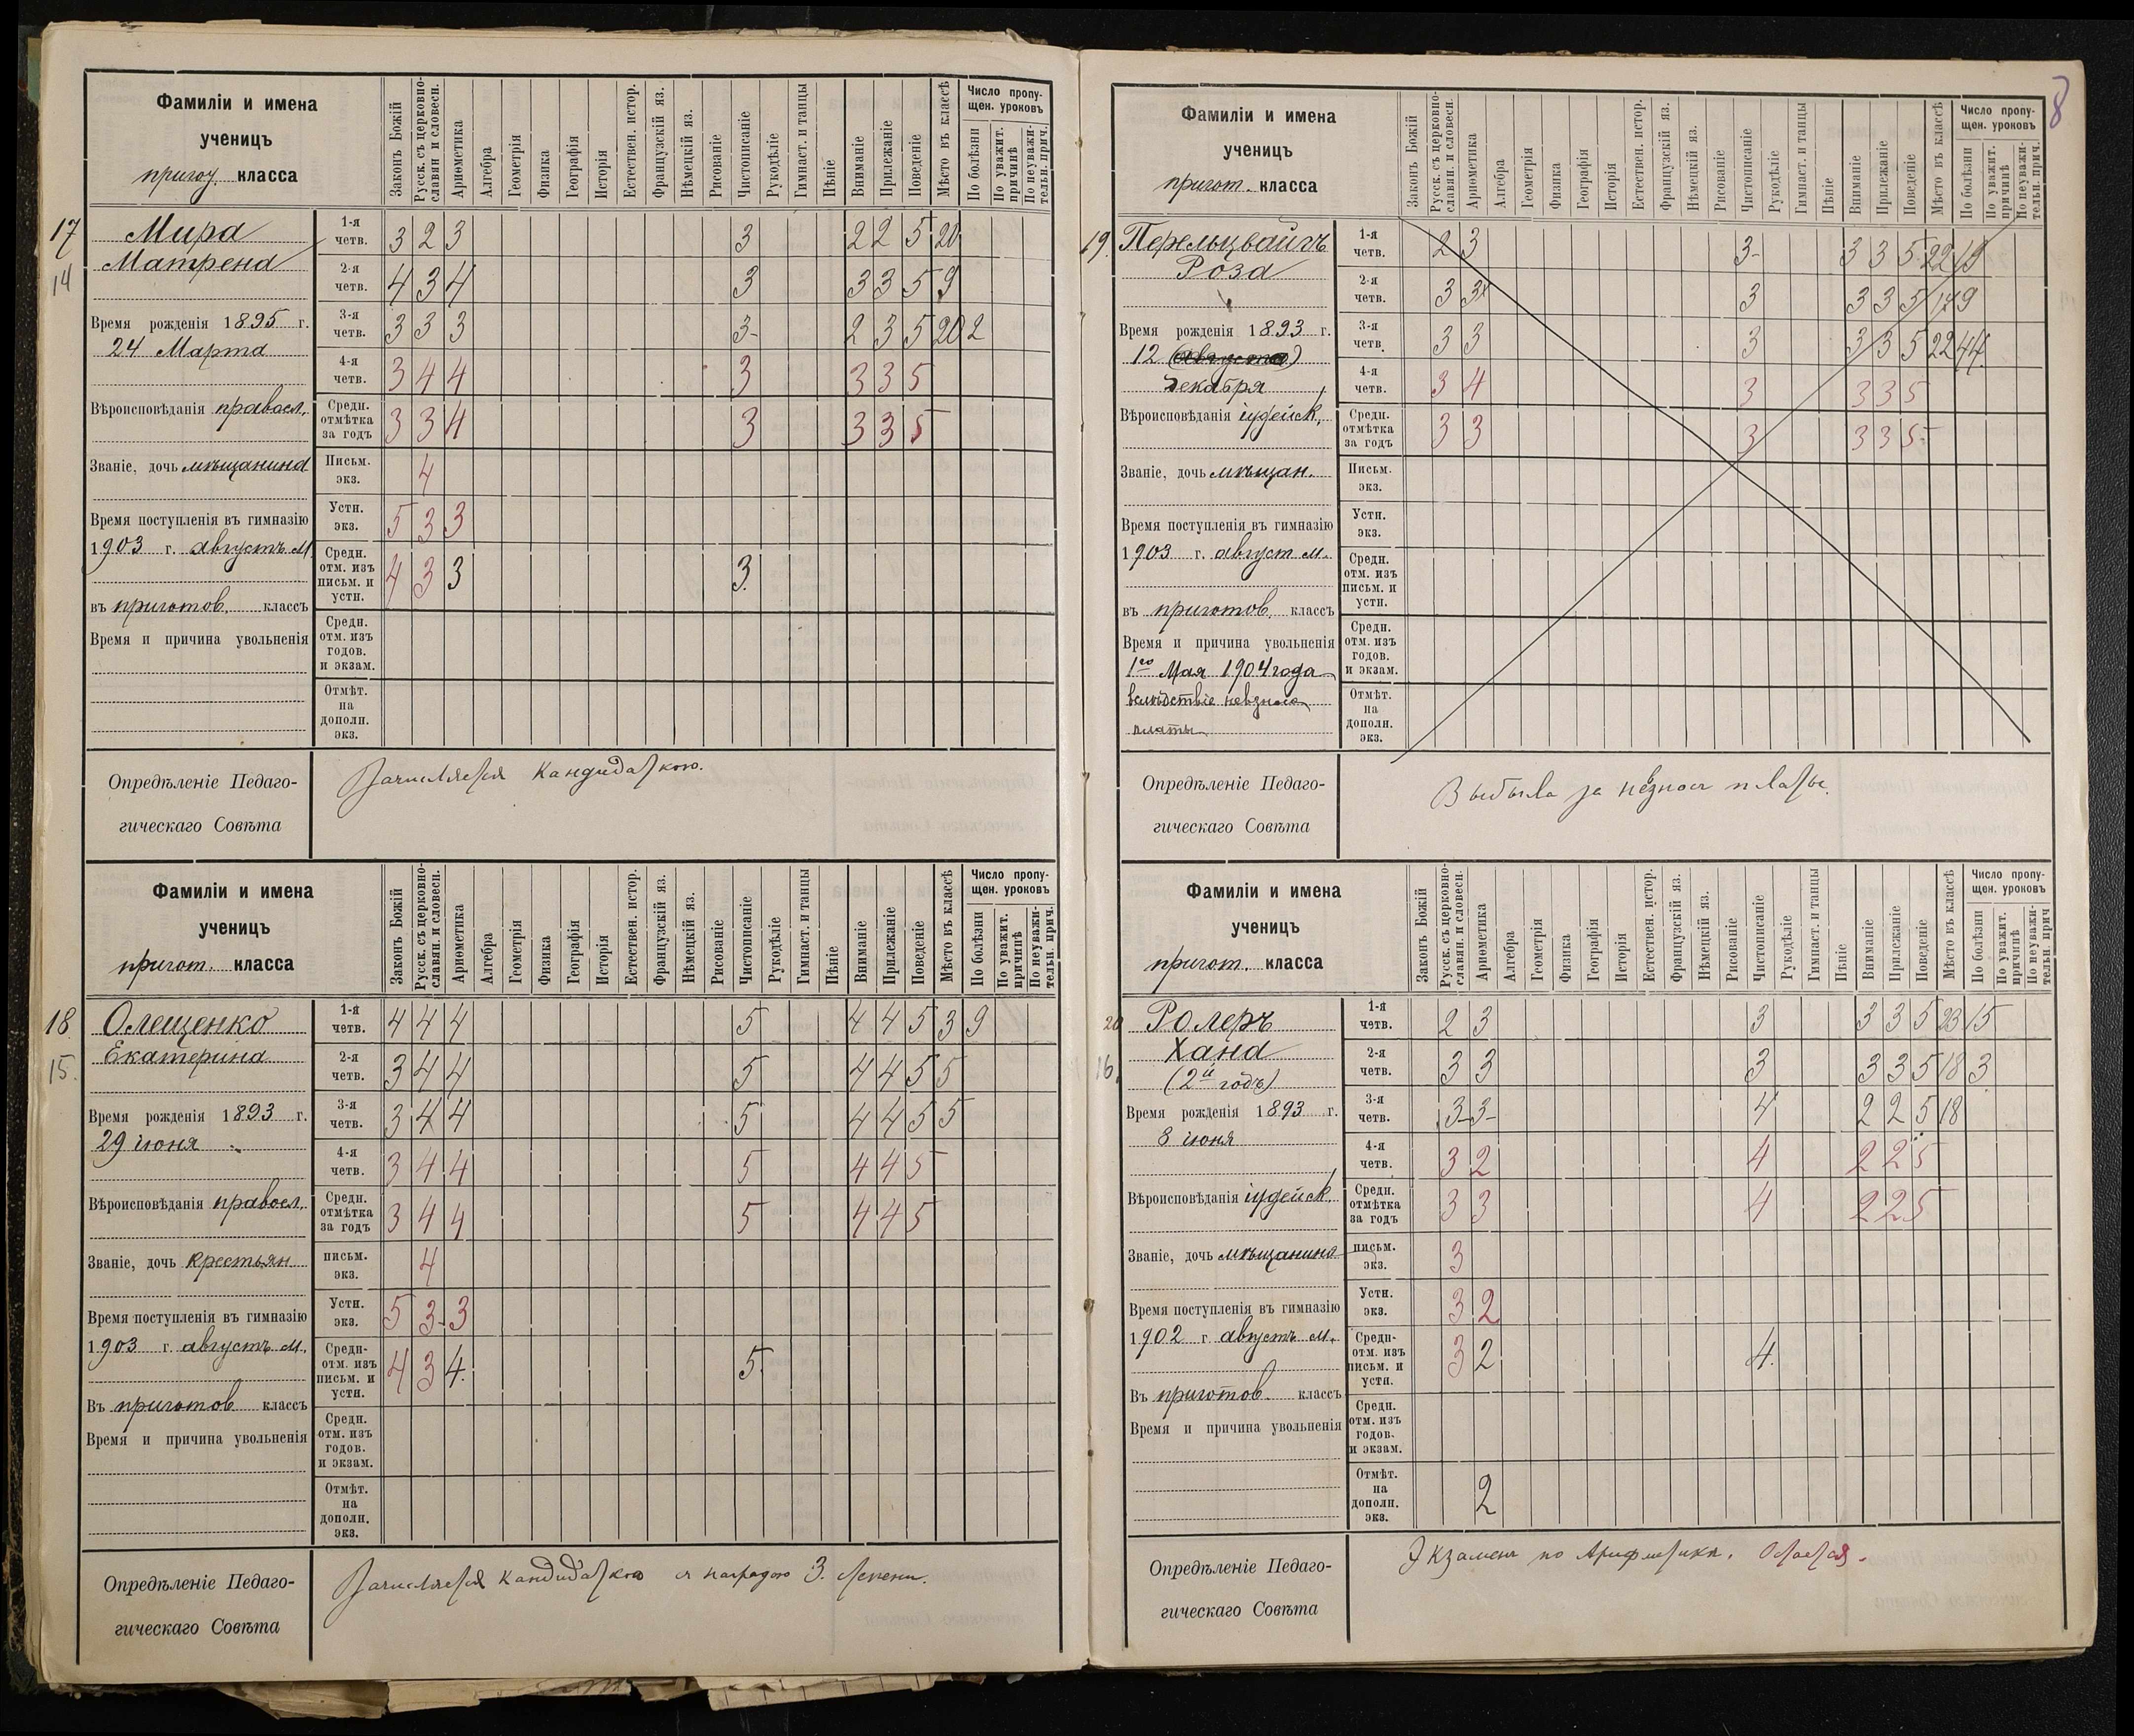 8
Фамиліи и имена
ученицъ
пригот. класса
Законъ Божій
Русск. съ церковно-славян. и словесн.
Ариѳметика
Алгебра
Геометрія
Физика
Географія
Исторія
Естествен. истор.
Французскій яз.
Нѣмецкій яз.
Рисованіе
Чистописаніе
Рукодѣліе
Гимнаст. и танцы
Пѣніе
Вниманіе
Прилежаніе
Поведеніе
Мѣсто въ классѣ
Число пропу-
щен. уроковъ
По болѣзни
По уважит. причинѣ
По неуважи-тельн. прич.
17
14
Мира
Матрена
Время рожденія 1895 г.
24 Марта
Вѣроисповѣданія правосл.
Званіе, дочь мѣщанина
Время поступленія въ гимназію
1903 г. августъ м.
въ приготов. классъ
Время и причина увольненія
1-я четв. 3 2 3 3 2 2 5 20
2-я четв. 4 3 4 3 3 3 5 9
3-я четв. 3 3 3 3- 2 3 5 20 2
4-я четв. 3 4 4 3 3 3 5
Средн. отмѣтка за годъ 3 3 4 3 3 3 5
Письм. экз. 4
Устн. экз. 5 3 3
Средн. отм. изъ письм. и устн. 4 3 3 3.
Средн. отм. изъ годов. и экзам.
Отмѣт. на дополн. экз.
Опредѣленіе Педаго-
гическаго Совѣта
Зачисляется кандидаткою.
Фамиліи и имена
ученицъ
пригот. класса
Законъ Божій
Русск. съ церковно-славян. и словесн.
Ариѳметика
Алгебра
Геометрія
Физика
Географія
Исторія
Естествен. истор.
Французскій яз.
Нѣмецкій яз.
Рисованіе
Чистописаніе
Рукодѣліе
Гимнаст. и танцы
Пѣніе
Вниманіе
Прилежаніе
Поведеніе
Мѣсто въ классѣ
Число пропу-
щен. уроковъ
По болѣзни
По уважит. причинѣ
По неуважи-тельн. прич.
18
15.
Олещенко
Екатерина
Время рожденія 1893 г.
29 іюня
Вѣроисповѣданія правосл.
Званіе, дочь крестьян
Время поступленія въ гимназію
1903 г. августъ м.
Въ приготов классъ
Время и причина увольненія
1-я четв. 4 4 4 5 4 4 5 3 9
2-я четв. 3 4 4 5 4 4 5 5
3-я четв. 3 4 4 5 4 4 5 5
4-я четв. 3 4 4 5 4 4 5
Средн. отмѣтка за годъ 3 4 4 5 4 4 5
письм. экз. 4
Устн. экз. 5 3- 3
Средн- отм. изъ письм. и устн. 4 3 4. 5.
Средн. отм. изъ годов. и экзам.
Отмѣт. на дополн. экз.
Опредѣленіе Педаго-
гическаго Совѣта
Зачисляется кандидаткою съ наградою 3. степени.
Фамиліи и имена
ученицъ
пригот. класса
Законъ Божій
Русск. съ церковно-славян. и словесн.
Ариѳметика
Алгебра
Геометрія
Физика
Географія
Исторія
Естествен. истор.
Французскій яз.
Нѣмецкій яз.
Рисованіе
Чистописаніе
Рукодѣліе
Гимнаст. и танцы
Пѣніе
Вниманіе
Прилежаніе
Поведеніе
Мѣсто въ классѣ
Число пропу-
щен. уроковъ
По болѣзни
По уважит. причинѣ
По неуважи-тельн. прич.
19.
Перельцвайгъ
Роза
Время рожденія 1893 г.
12 (августа)
Декабря
Вѣроисповѣданія іудейск.
Званіе, дочь мѣщан.
Время поступленія въ гимназію
1903 г. август м.
въ приготов. классъ
Время и причина увольненія
1го Мая 1904 года
вслѣдствіе невзноса
платы
1-я четв. 2 3 3- 3 3 5 22 19
2-я четв. 3 3 3 3 3 5 17 9
3-я четв. 3 3 3 3 3 5 22 44
4-я четв. 3 4 3 3 3 5
Средн. отмѣтка за годъ 3 3 3 3 3 5-
Письм. экз.
Устн. экз.
Средн. отм. изъ письм. и устн.
Средн. отм. изъ годов. и экзам.
Отмѣт. на дополн. экз.
Опредѣленіе Педаго-
гическаго Совѣта
Выбыла за невзнос платы.
Фамиліи и имена
ученицъ
пригот. класса
Законъ Божій
Русск. съ церковно-славян. и словесн.
Ариѳметика
Алгебра
Геометрія
Физика
Географія
Исторія
Естествен. истор.
Французскій яз.
Нѣмецкій яз.
Рисованіе
Чистописаніе
Рукодѣліе
Гимнаст. и танцы
Пѣніе
Вниманіе
Прилежаніе
Поведеніе
Мѣсто въ классѣ
Число пропу-
щен. уроковъ
По болѣзни
По уважит. причинѣ
По неуважи-тельн. прич
20
16.
Ролеръ
Хана
(2й годъ)
Время рожденія 1893 г.
8 іюня
Вѣроисповѣданія іудейск.
Званіе, дочь мѣщанина
Время поступленія въ гимназію
1902 г августъ м.
Въ приготов. классъ
Время и причина увольненія
1-я четв. 2 3 3 3 3 5 23 15
2-я четв. 3 3 3 3 3 5 18 3
3-я четв. 3- 3- 4 2 2 5 18
4-я четв. 3 2 4 2 2 5
Средн. отмѣтка за годъ 3 3 4 2 2 5
письм. экз. 3
Устн. экз. 3 2
Средн- отм. изъ письм. и устн. 3 2 4.
Средн. отм. изъ годов. и экзам.
Отмѣт. на дополн. экз. 2
Опредѣленіе Педаго-
гическаго Совѣта
Экзаменъ по Арифметикѣ. Остается.